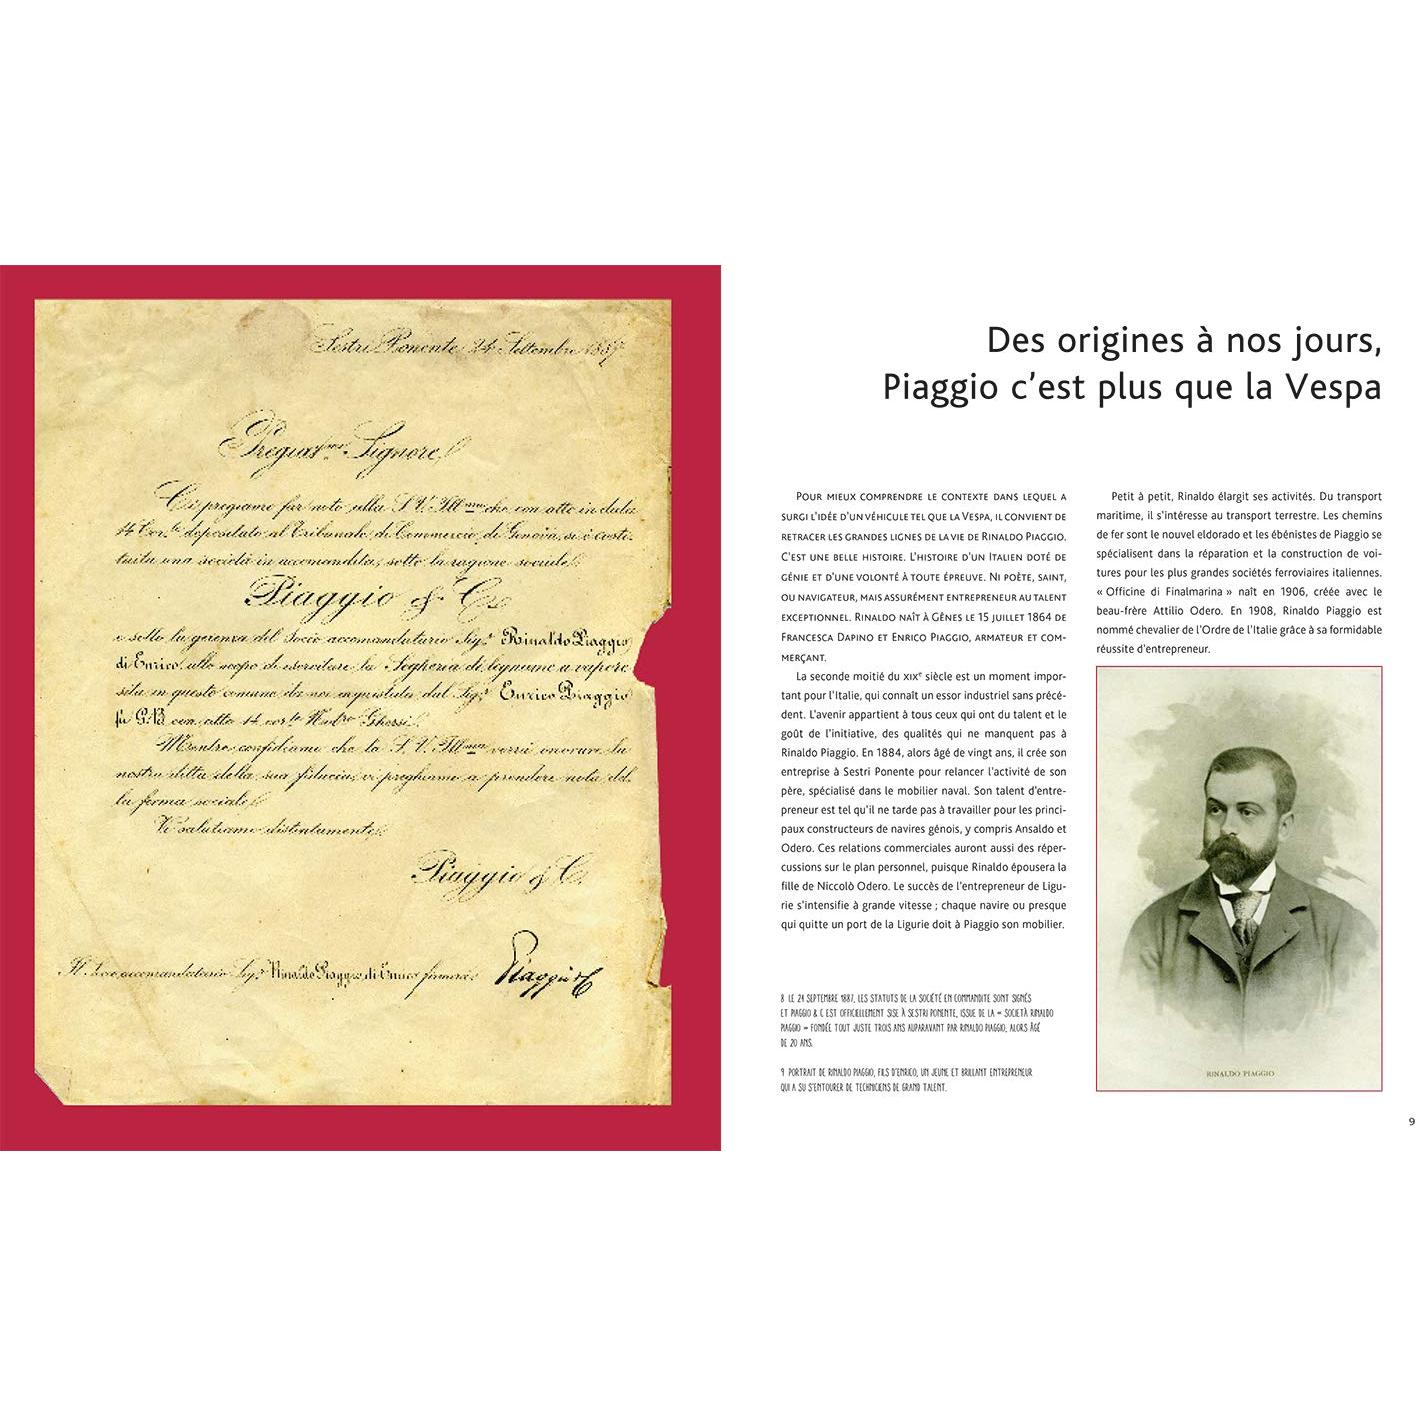 Sestri Ponente 24 Settembre 1887
Pregiat.mo Signore,
Ci pregiamo far noto alla S. V. Ill.ma che con atto in data
14 Corr.te depositato al Tribunale di Commercio di Genova, si è costi-
tuita una società in accomandita, sotto la ragione sociale
Piaggio & C.
e sotto la gerenza del Socio accomandatario Sig.r Rinaldo Piaggio
di Enrico, allo scopo di esercitare la Segheria di legname a vapore
sita in questo comune da noi acquistata dal Sig.r Enrico Piaggio
fu G.B con atto 14 corr.te Notro Ghersi.
Mentre confidiamo che la S. V. Ill.ma vorrà onorare la
nostra ditta della sua fiducia, vi preghiamo a prendere nota del-
la firma sociale.
Vi salutiamo distintamente.
Piaggio & C.
Il Socio accomandatario Sig.r Rinaldo Piaggio di Enrico firmerà: Piaggio & C
Des origines à nos jours,
Piaggio c'est plus que la Vespa
Pour mieux comprendre le contexte dans lequel a
surgi l'idée d'un véhicule tel que la Vespa, il convient de
retracer les grandes lignes de la vie de Rinaldo Piaggio.
C'est une belle histoire. L'histoire d'un Italien doté de
génie et d'une volonté à toute épreuve. Ni poète, saint,
ou navigateur, mais assurément entrepreneur au talent
exceptionnel. Rinaldo naît à Gênes le 15 juillet 1864 de
Francesca Dapino et Enrico Piaggio, armateur et com-
merçant.
La seconde moitié du XIXe siècle est un moment impor-
tant pour l'Italie, qui connaît un essor industriel sans précé-
dent. L'avenir appartient à tous ceux qui ont du talent et le
goût de l'initiative, des qualités qui ne manquent pas à
Rinaldo Piaggio. En 1884, alors âgé de vingt ans, il crée son
entreprise à Sestri Ponente pour relancer l'activité de son
père, spécialisé dans le mobilier naval. Son talent d'entre-
preneur est tel qu'il ne tarde pas à travailler pour les princi-
paux constructeurs de navires génois, y compris Ansaldo et
Odero. Ces relations commerciales auront aussi des réper-
cussions sur le plan personnel, puisque Rinaldo épousera la
fille de Niccolò Odero. Le succès de l'entrepreneur de Ligu-
rie s'intensifie à grande vitesse ; chaque navire ou presque
qui quitte un port de la Ligurie doit à Piaggio son mobilier.
8 LE 24 SEPTEMBRE 1887, LES STATUTS DE LA SOCIÉTÉ EN COMMANDITE SONT SIGNÉS
ET PIAGGIO & C EST OFFICIELLEMENT SISE À SESTRI PONENTE, ISSUE DE LA « SOCIETÀ RINALDO
PIAGGIO » FONDÉE TOUT JUSTE TROIS ANS AUPARAVANT PAR RINALDO PIAGGIO, ALORS ÂGÉ
DE 20 ANS.
9 PORTRAIT DE RINALDO PIAGGIO, FILS D'ENRICO, UN JEUNE ET BRILLANT ENTREPRENEUR
QUI A SU S'ENTOURER DE TECHNICIENS DE GRAND TALENT.
Petit à petit, Rinaldo élargit ses activités. Du transport
maritime, il s'intéresse au transport terrestre. Les chemins
de fer sont le nouvel eldorado et les ébénistes de Piaggio se
spécialisent dans la réparation et la construction de voi-
tures pour les plus grandes sociétés ferroviaires italiennes.
« Officine di Finalmarina » naît en 1906, créée avec le
beau-frère Attilio Odero. En 1908, Rinaldo Piaggio est
nommé chevalier de l'Ordre de l'Italie grâce à sa formidable
réussite d'entrepreneur.
RINALDO PIAGGIO
9